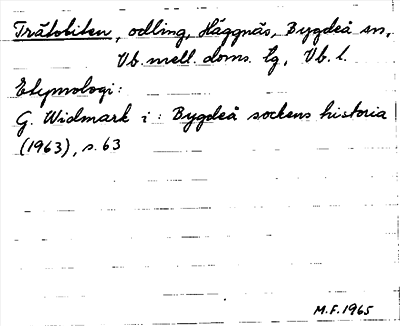 Tråtobiten, odling, Häggnäs, Bygdeå sn,
Vb. mell. doms. tg, Vb. l.
Etymologi:
G. Widmark i: Bygdeå sockens historia
(1963), s. 63
M.F. 1965